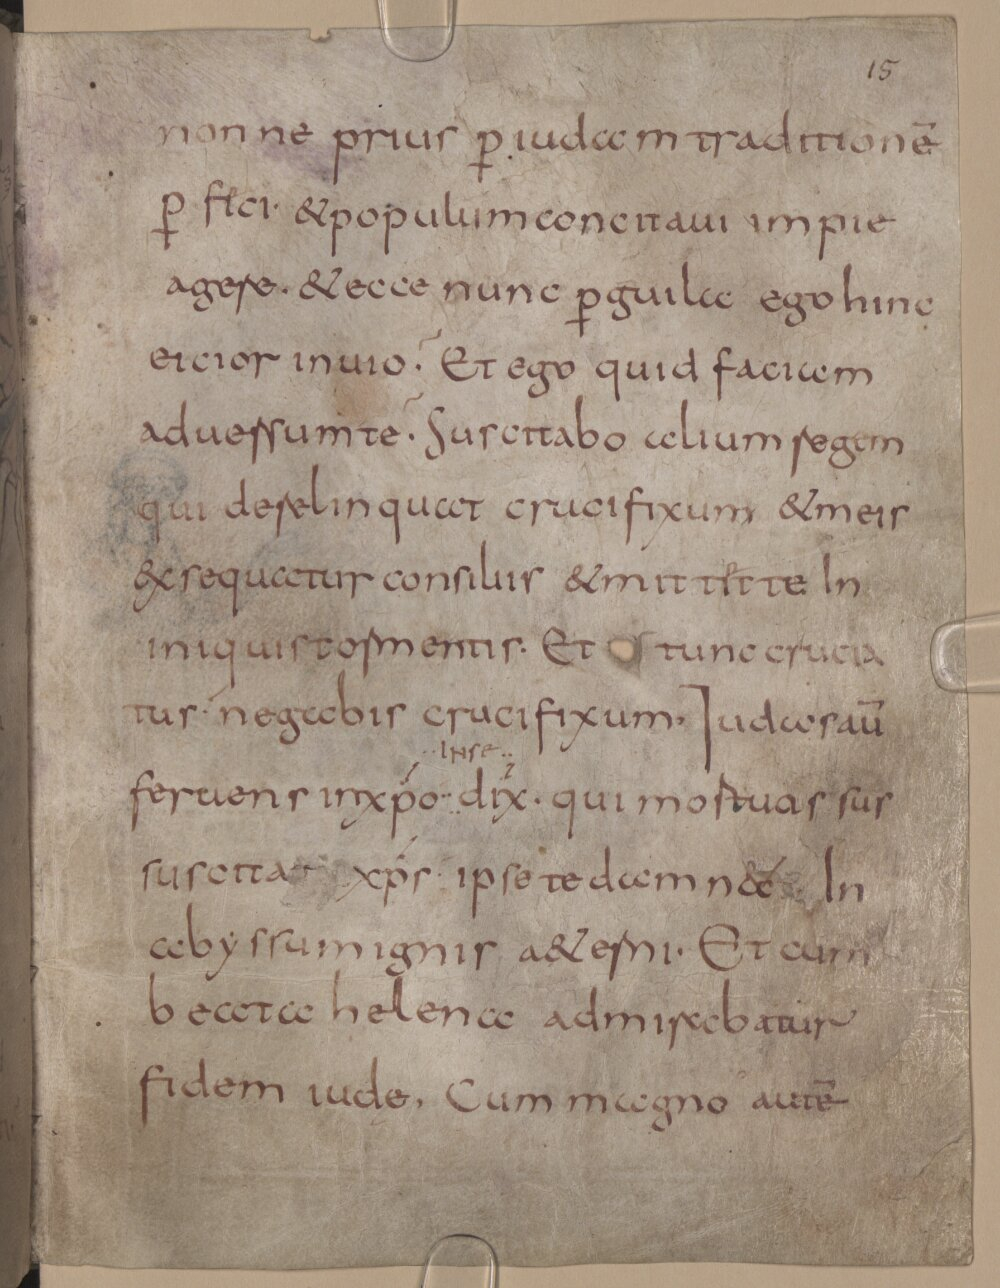 15
nonne prius p̱ iudam traditionē
p̱ feci· &populumconcitaui impie
agere· &ecce nunc p̱guila ego hinc
eicior inuio· Et ego quid faciam
aduersumte· Suscitabo alium regem
qui derelinquat crucifixum &meis
&sequatur consiliis &mittitte In
iniquistormentis· Et tunc crucia
tus· negabis crucifixum· Iudasaū
··Ipse··
feruens inxp̄o· dix̄· qui mortuas sus
suscitat xp̄s· ipse te damn& In
abyssum ignis a&erni· Et cum
beata helena admirabatur
fidem iude, Cum magno autē